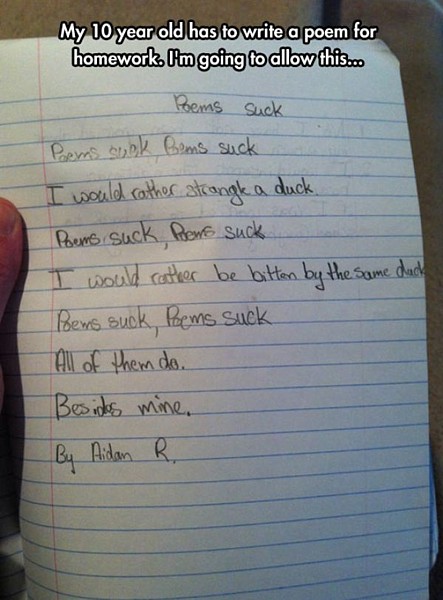 My 10 year old has to write a poem for
homework. I'm going to allow this...
Poems suck
Poems suck Poems suck
I would rather strangle a duck
Poems suck, Poems suck
I would rather be bitten by the same duck
Poems suck, Poems suck
All of them do.
Besides mine.
By Aidan R.